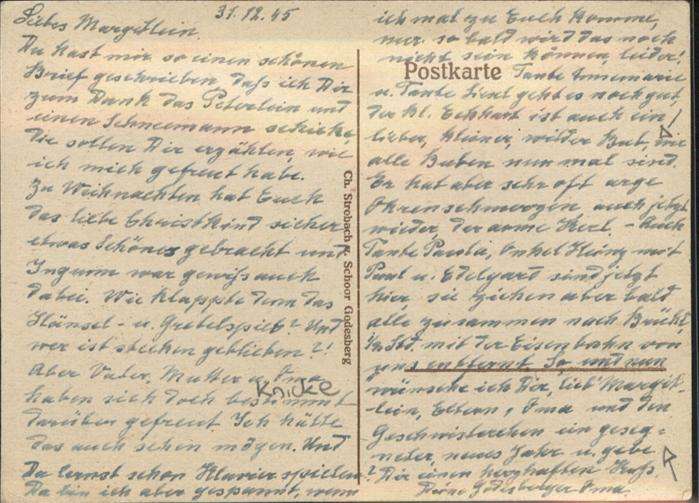 31.12.45
Liebes Margetlein.
Du hast mir so einen schönen
Brief geschrieben daß ich Dir
zum Dank das Peterlein und
einen Schneemann schicke,
die sollen Dir erzählen, wie
ich mich gefreut habe.
Zu Weihnachten hat Euch
das liebe Christkind sicher
etwas Schönes gebracht und
Ingurun war gewiß auch
dabei. Wie klappte denn das
Hänsel- u. Gretelspiel? Und
wer ist stecken geblieben?!
Aber Vater, Mutter u. Oma
haben sich doch bestimmt
darüber gefreut. Ich hätte
das auch sehen mögen. Und
Du lernst schon Klavier spielen?
Da bin ich aber gespannt, wenn
Knicke
Ch. Strobach u. Schoor Godesberg
Postkarte
ich mal zu Euch komme,
nur so bald wird das noch
nicht sein können, leider!
Tante Annemarie
u. Tante Liesl geht es noch gut,
der kl. Eckhart ist auch ein
lieber, kleiner, wilder Bub, wie
alle Buben nun mal sind.
Er hat aber sehr oft arge
Ohrenschmerzen auch jetzt
wieder, der arme Kerl. - Auch
Tante Paula, Onkel Heinz mit
Paul u. Edelgard sind jetzt
hier sie ziehen aber bald
alle zusammen nach
Std. mit der Eisenbahn von
uns entfernt. So und nun
wünsche ich Dir, lieb' Marget-
lein, Eltern, Oma und den
Geschwisterchen ein geseg-
netes, neues Jahr u. gebe
Dir einen herzhaften Kuß
Deine Godesberger Oma